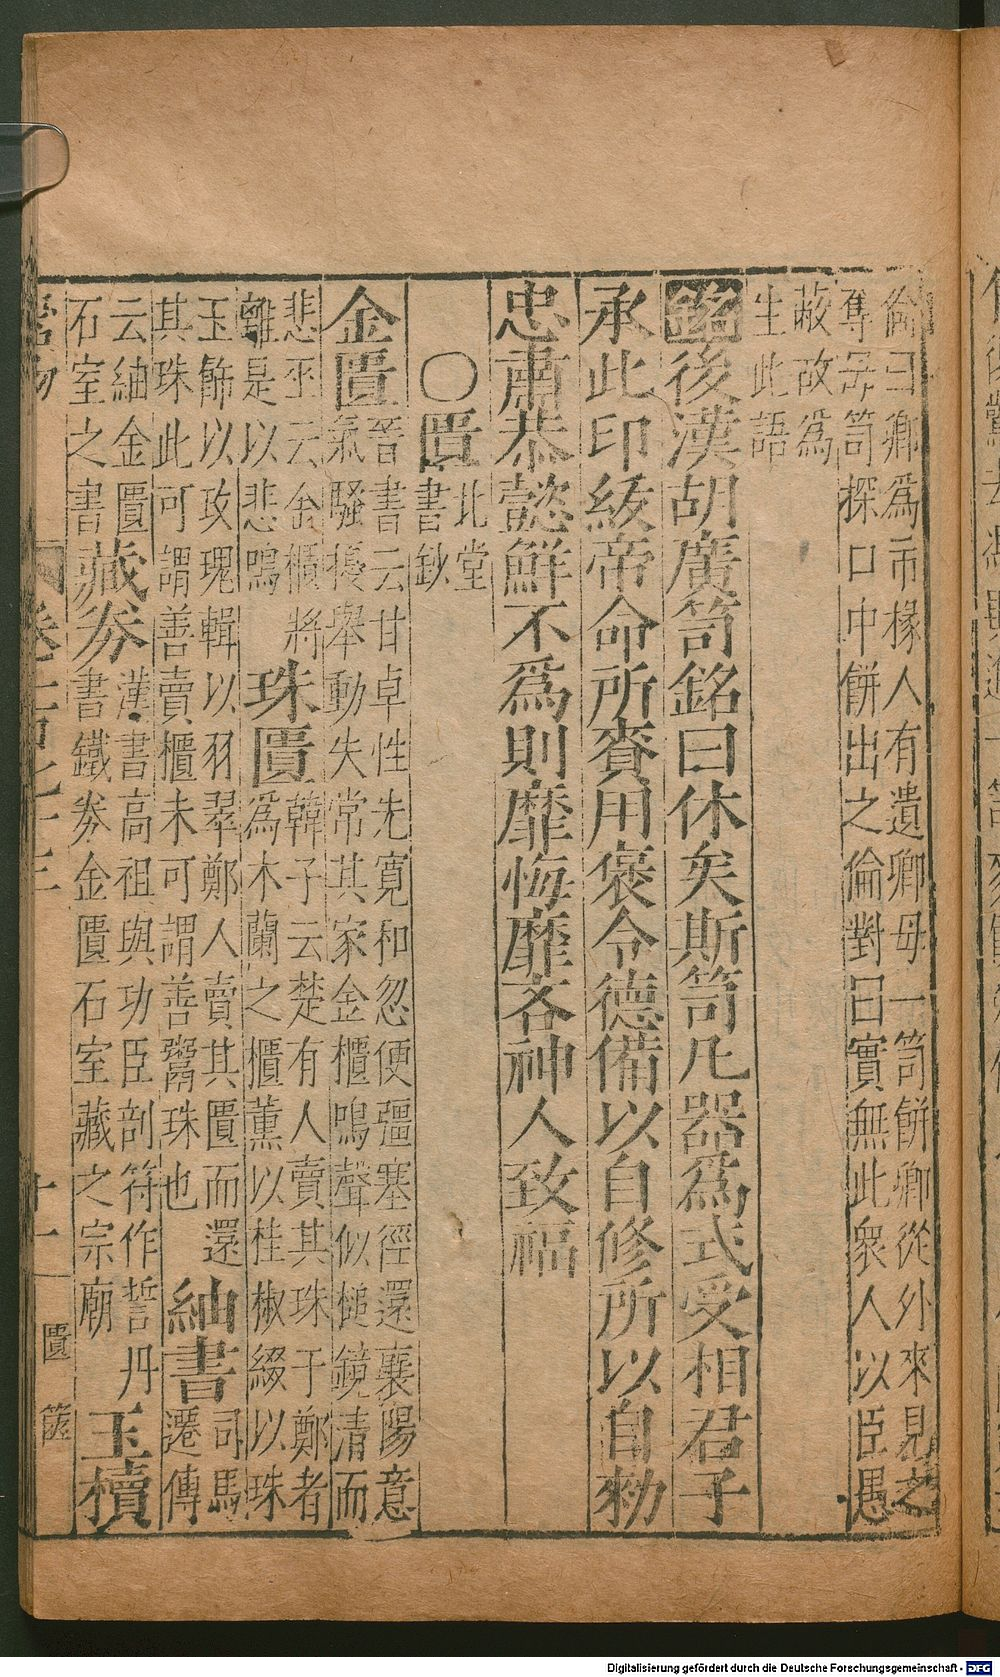 倫曰卿爲市椽人有遺卿母一笥餅卿從外來見之
奪母笥探口中餅出之倫對曰實無此衆人以臣愚
蔽故爲
生此語
銘後漢胡廣笥銘曰休矣斯笥凡器爲式受相君子
承此印紱帝命所賚用褒令德備以自修所以自勑
忠肅恭懿鮮不爲則靡悔靡吝神人致福
○匱北堂
書鈔
金匱晉書云甘卓性先寬和忽便彊塞徑還襄陽意
氣騷擾舉動失常其家金櫃鳴聲似槌鏡清而
悲巫云金櫃將
離是以悲鳴
珠匱韓子云楚有人賣其珠于鄭者
爲木蘭之櫃薰以桂椒綴以珠
玉飾以玫瑰輯以羽翠鄭人賣其匱而還
其珠此可謂善賣櫃未可謂善鬻珠也
紬書司馬
遷傳
云紬金匱
石室之書
藏券漢書高祖與功臣剖符作誓丹
書鐵券金匱石室藏之宗廟
玉櫝
十一
匱
篋
Digitalisierung gefördert durch die Deutsche Forschungsgemeinschaft - DFG